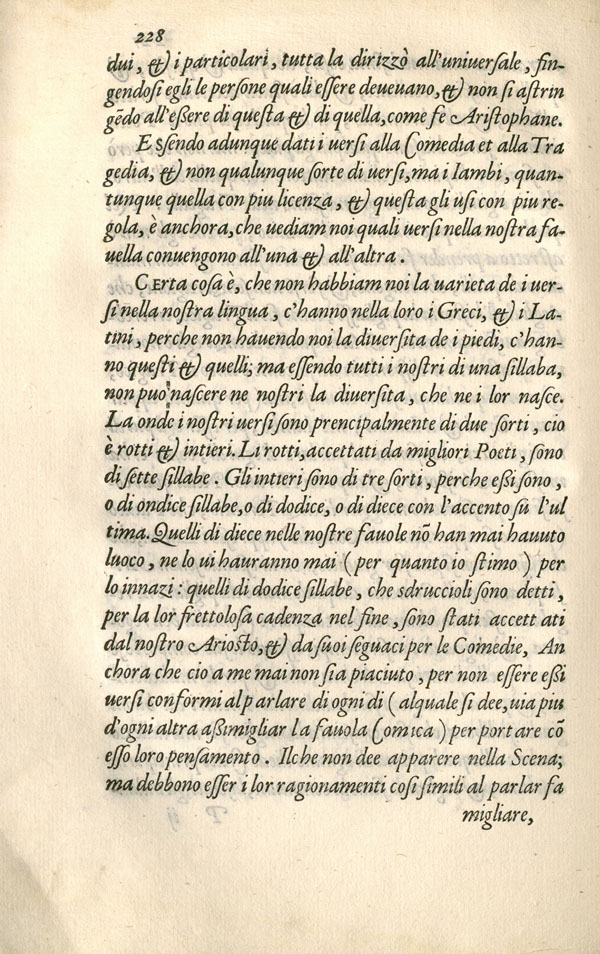 228
dui, & i particolari, tutta la dirizzò all'uniuersale, fin-
gendosi egli le persone quali essere deueuano, & non si astrin
gẽdo all'eßere di questa & di quella, come fe Aristophane.
ESsendo adunque dati i uersi alla Comedia et alla Tra
gedia, & non qualunque sorte di uersi, ma i Iambi, quan-
tunque quella con piu licenza, & questa gli usi con piu re-
gola, è anchora, che uediam noi quali uersi nella nostra fa-
uella conuengono all'una & all'altra.
CErta cosa è, che non habbiam noi la uarieta de i uer-
si nella nostra lingua, c'hanno nella loro i Greci, & i La-
tini, perche non hauendo noi la diuersita de i piedi, c'han-
no questi & quelli; ma essendo tutti i nostri di una sillaba,
non puo nascere ne nostri la diuersita, che ne i lor nasce.
La onde i nostri uersi sono prencipalmente di due sorti, cio
è rotti & intieri. Li rotti, accettati da migliori Poeti, sono
di sette sillabe. Gli intieri sono di tre sorti, perche eßi sono,
o di ondice sillabe, o di dodice, o di diece con l'accento sù l'ul
tima. Quelli di diece nelle nostre fauole nõ han mai hauuto
luoco, ne lo ui hauranno mai (per quanto io stimo) per
lo innazi: quelli di dodice sillabe, che sdruccioli sono detti,
per la lor frettolosa cadenza nel fine, sono stati accettati
dal nostro Ariosto, & da suoi seguaci per le Comedie, An
chora che cio a me mai non sia piaciuto, per non essere eßi
uersi conformi al parlare di ogni di (al quale si dee, uia piu
d'ogni altra aßimigliar la fauola Comica) per portare cõ
esso loro pensamento. Ilche non dee apparere nella Scena;
ma debbono esser i lor ragionamenti cosi simili al parlar fa
migliare,